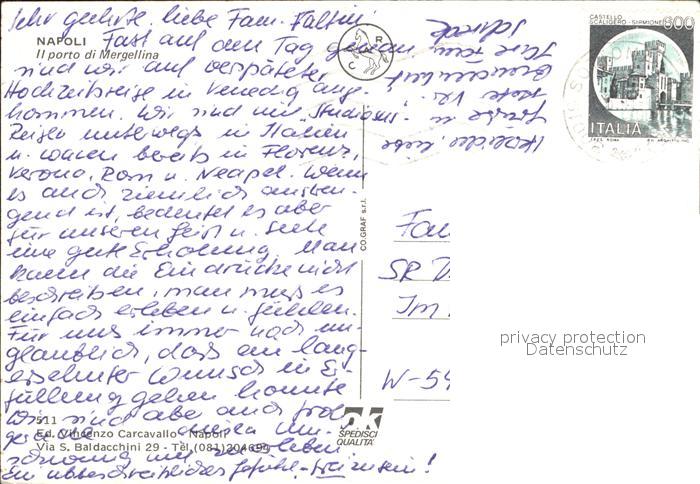 Sehr geehrte, liebe Fam.
NAPOLI
Il porto di Mergellina
Fast auf den Tag genau
sind wir auf verspäteter
Hochzeitsreise in Venedig ange-
kommen. Wir sind mit "Studiosus"-
Reisen unterwegs in Italien
u. waren bereits in Florenz,
Verona, Rom u. Neapel. Wenn
es auch ziemlich anstren-
gend ist, bedeutet es aber
für unseren Geist u. Seele
eine gute Erholung. Man
kann die Eindrücke nicht
beschreiben, man muß es
einfach erleben u. fühlen.
Für uns immer noch un-
glaublich, daß ein lang-
ersehnter Wunsch in Er-
füllung gehen konnte
Wir sind aber auch froh
511
Ed. Vincenzo Carcavallo - Napoli
Via S. Baldacchini 29 - Tel. (081) 204694
ein unbeschreibliches Gefühl - frei zu sein!
Herzliche, liebe
Grüße in
Ihre Fam.
CO.GRAF s.r.l.
SPEDISCI
QUALITA'
CASTELLO
SCALIGERO - SIRMIONE
600
ITALIA
Fam
SR D
Im
W-59
privacy protection
Datenschutz